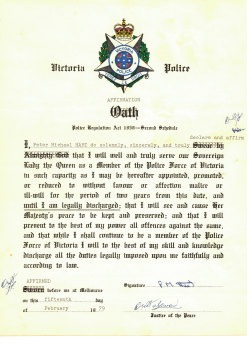 Victoria Police
AFFIRMATION
Oath
Police Regulation Act 1958—Second Schedule
Declare and affirm
I, Peter Michael do solemnly, sincerely, and truly Swear by
Almighty God that I will well and truly serve our Sovereign
Lady the Queen as a Member of the Police Force of Victoria
in such capacity as I may be hereafter appointed, promoted,
or reduced to without favour or affection malice or
ill-will for the period of two years from this date, and
until I am legally discharged; that I will see and cause Her
Majesty's peace to be kept and preserved; and that I will
prevent to the best of my power all offences against the same,
and that while I shall continue to be a member of the Police
Force of Victoria I will to the best of my skill and knowledge
discharge all the duties legally imposed upon me faithfully and
according to law.
AFFIRMED
Sworn before me at Melbourne Signature
on this fifteenth day
of February 1979
Justice of the Peace